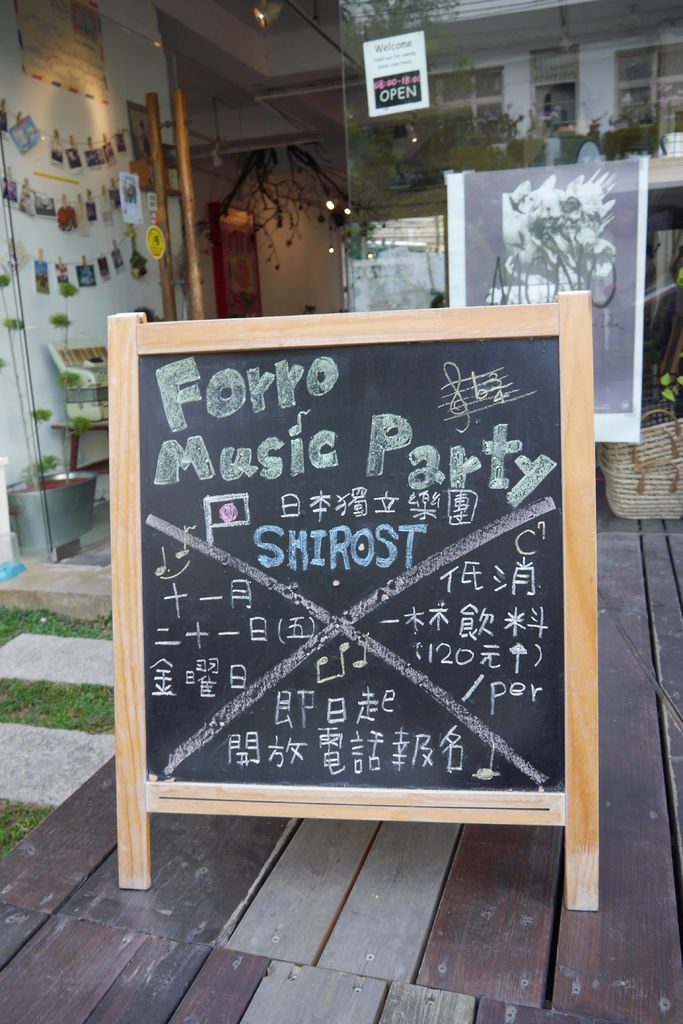 Welcome
08:00-18:00
OPEN
Forro
Music Party
日本獨立樂團
SHIROST
十一月
二十一日(五)
金曜日
低消
一杯飲料
(120元↑)
/per
即日起
開放電話報名